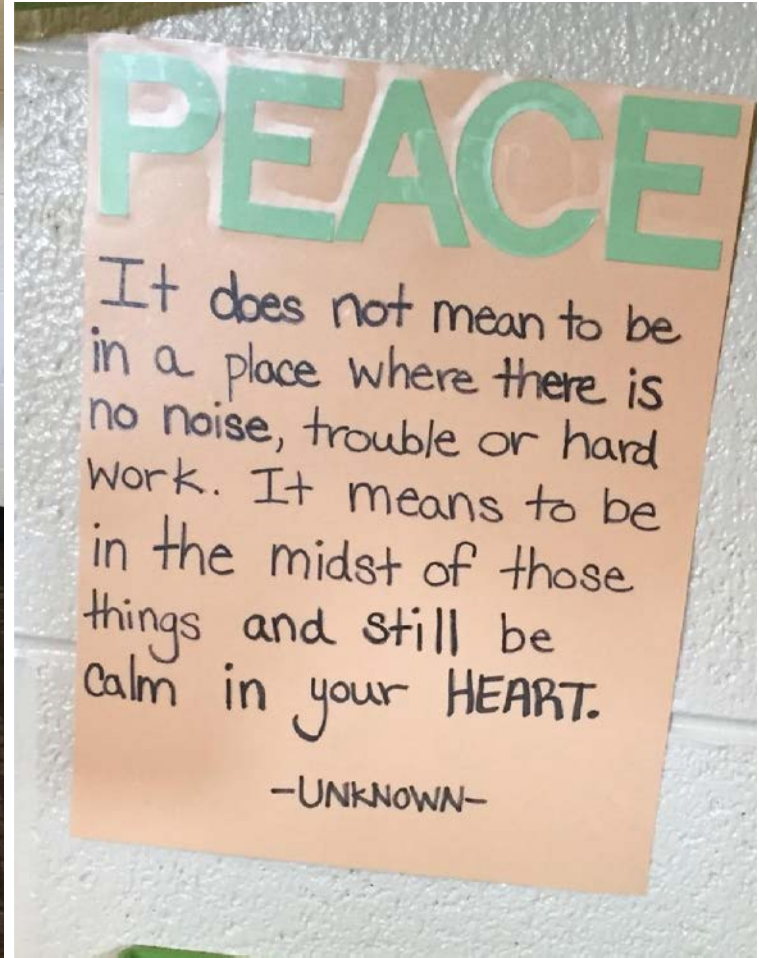 PEACE
It does not mean to be
in a place where there is
no noise, trouble or hard
work. It means to be
in the midst of those
things and still be
calm in your HEART.
-UNKNOWN-